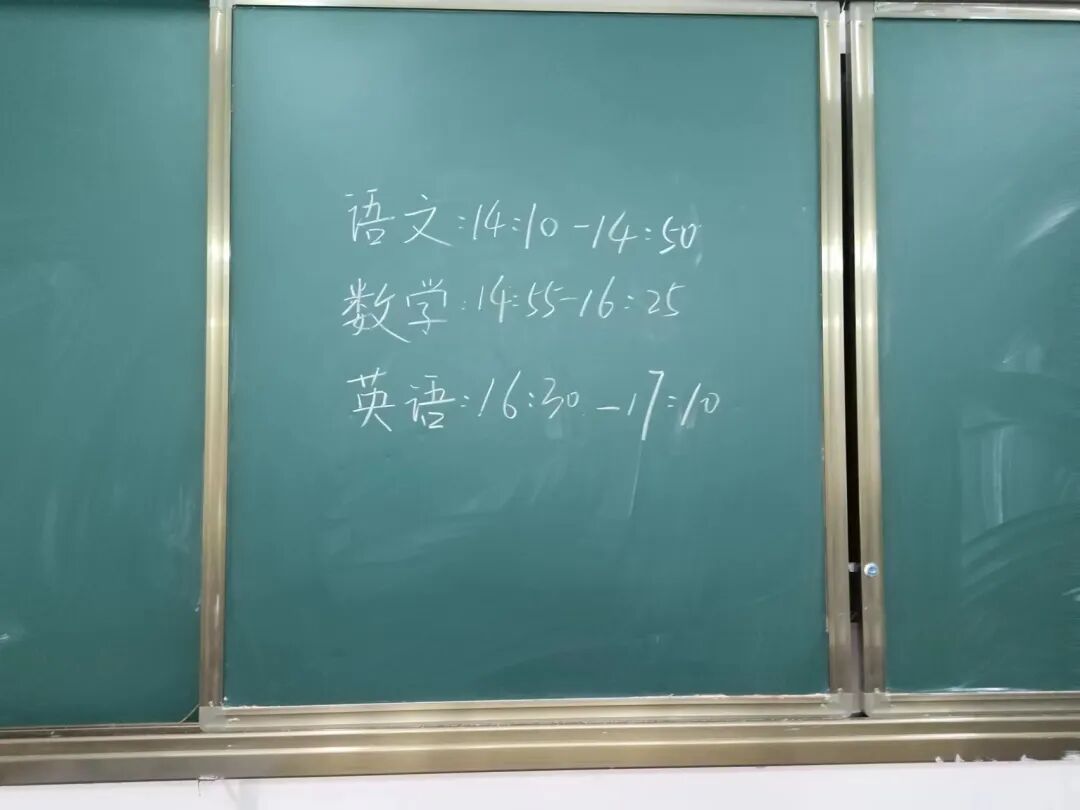 语文:14:10-14:50
数学:14:55-16:25
英语:16:30-17:10